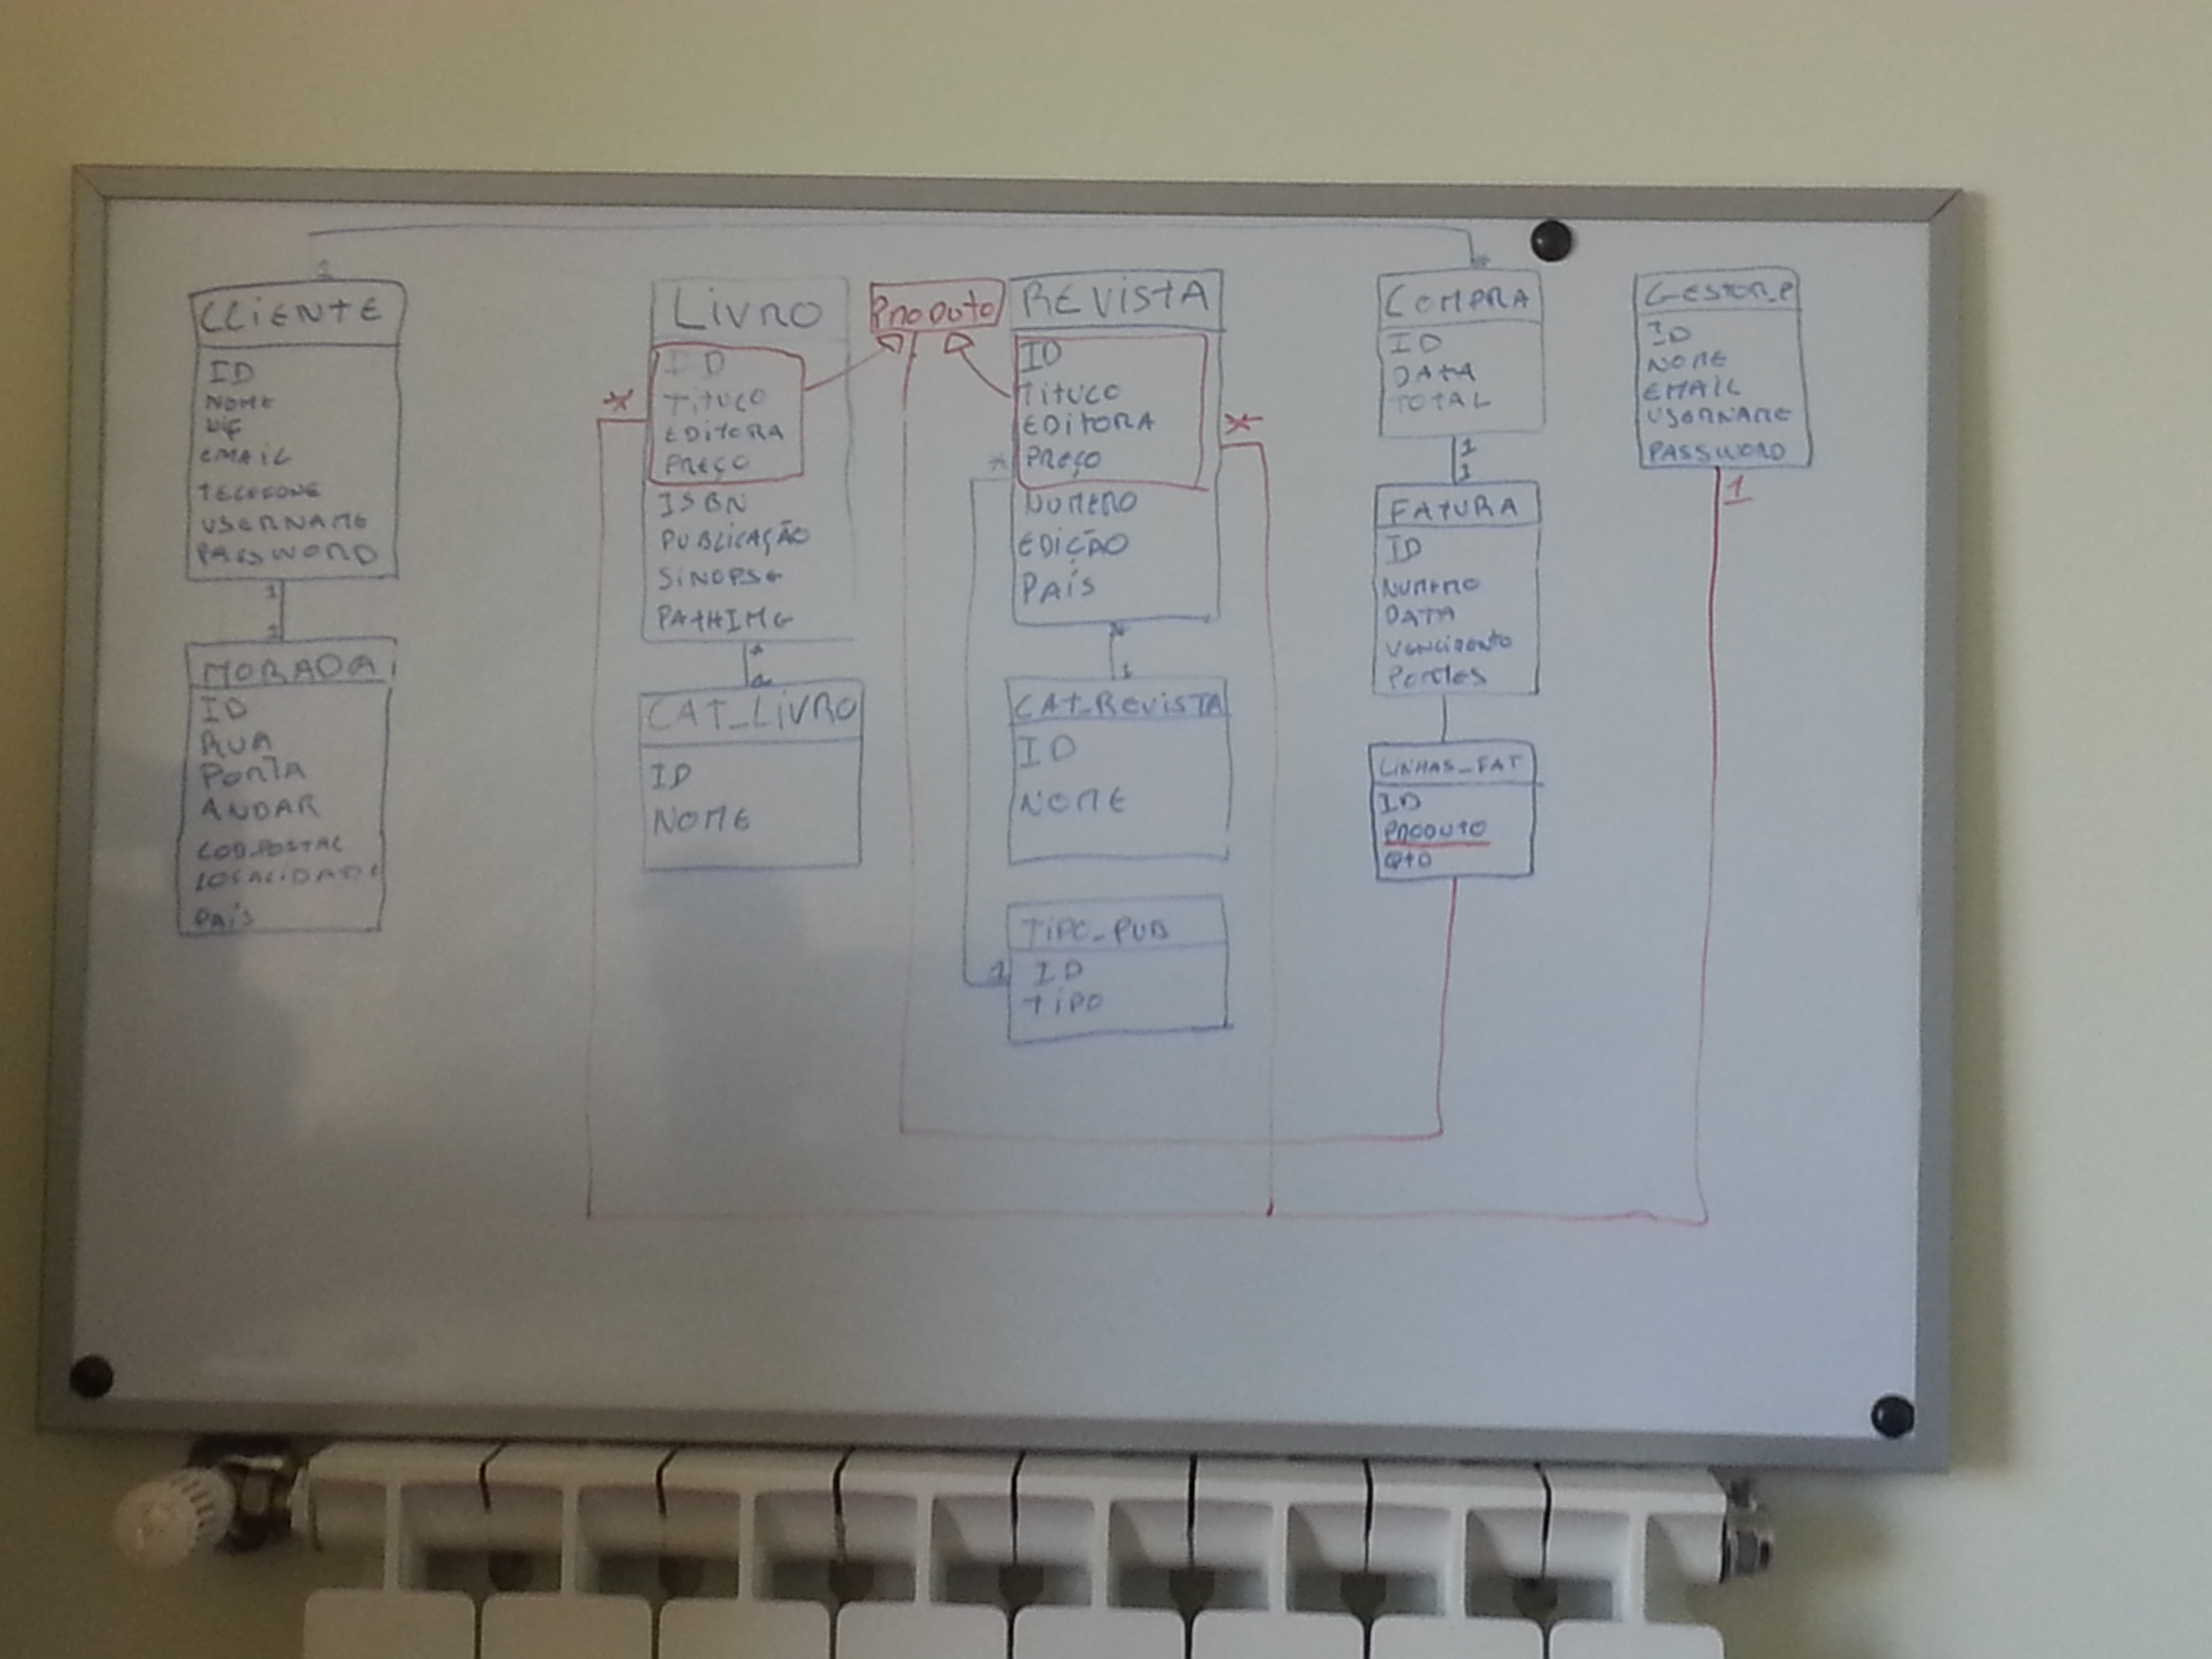 1
CLIENTE
ID
NOME
NIF
EMAIL
TELEFONE
USERNAME
PASSWORD
1
1
MORADA
ID
RUA
PORTA
ANDAR
COD_POSTAL
LOCALIDADE
PAÍS
LIVRO
*
ID
TITULO
EDITORA
PREÇO
ISBN
PUBLICAÇÃO
SINOPSE
PATHIMG
*
CAT_LIVRO
ID
NOME
PRODUTO
REVISTA
ID
TITULO
EDITORA
PREÇO
*
*
NUMERO
EDIÇÃO
PAÍS
*
1
CAT_REVISTA
ID
NOME
TIPO_PUB
1
ID
TIPO
*
COMPRA
ID
DATA
TOTAL
1
1
FATURA
ID
NUMERO
DATA
VENCIMENTO
PORTES
LINHAS_FAT
ID
PRODUTO
QTD
GESTOR_P
ID
NOME
EMAIL
USERNAME
PASSWORD
1